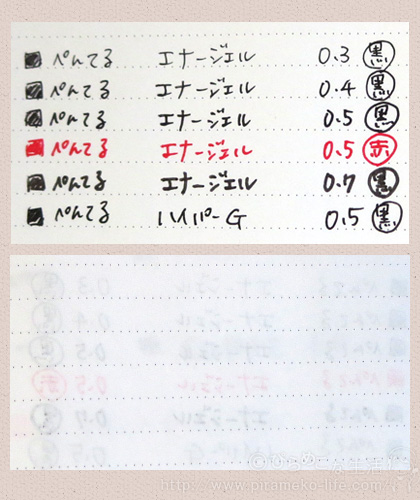 ぺんてる エナージェル 0.3 黒
ぺんてる エナージェル 0.4 黒
ぺんてる エナージェル 0.5 黒
ぺんてる エナージェル 0.5 赤
ぺんてる エナージェル 0.7 黒
ぺんてる ハイパーG 0.5 黒
http://www.pirameko-life.com/